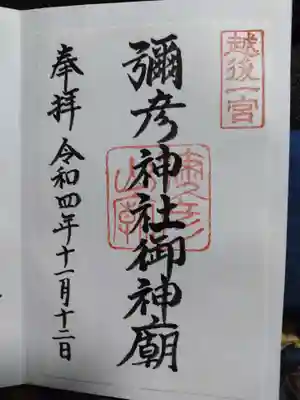 越後一宮
彌彦神社御神廟
奉拝 令和四年十一月十二日